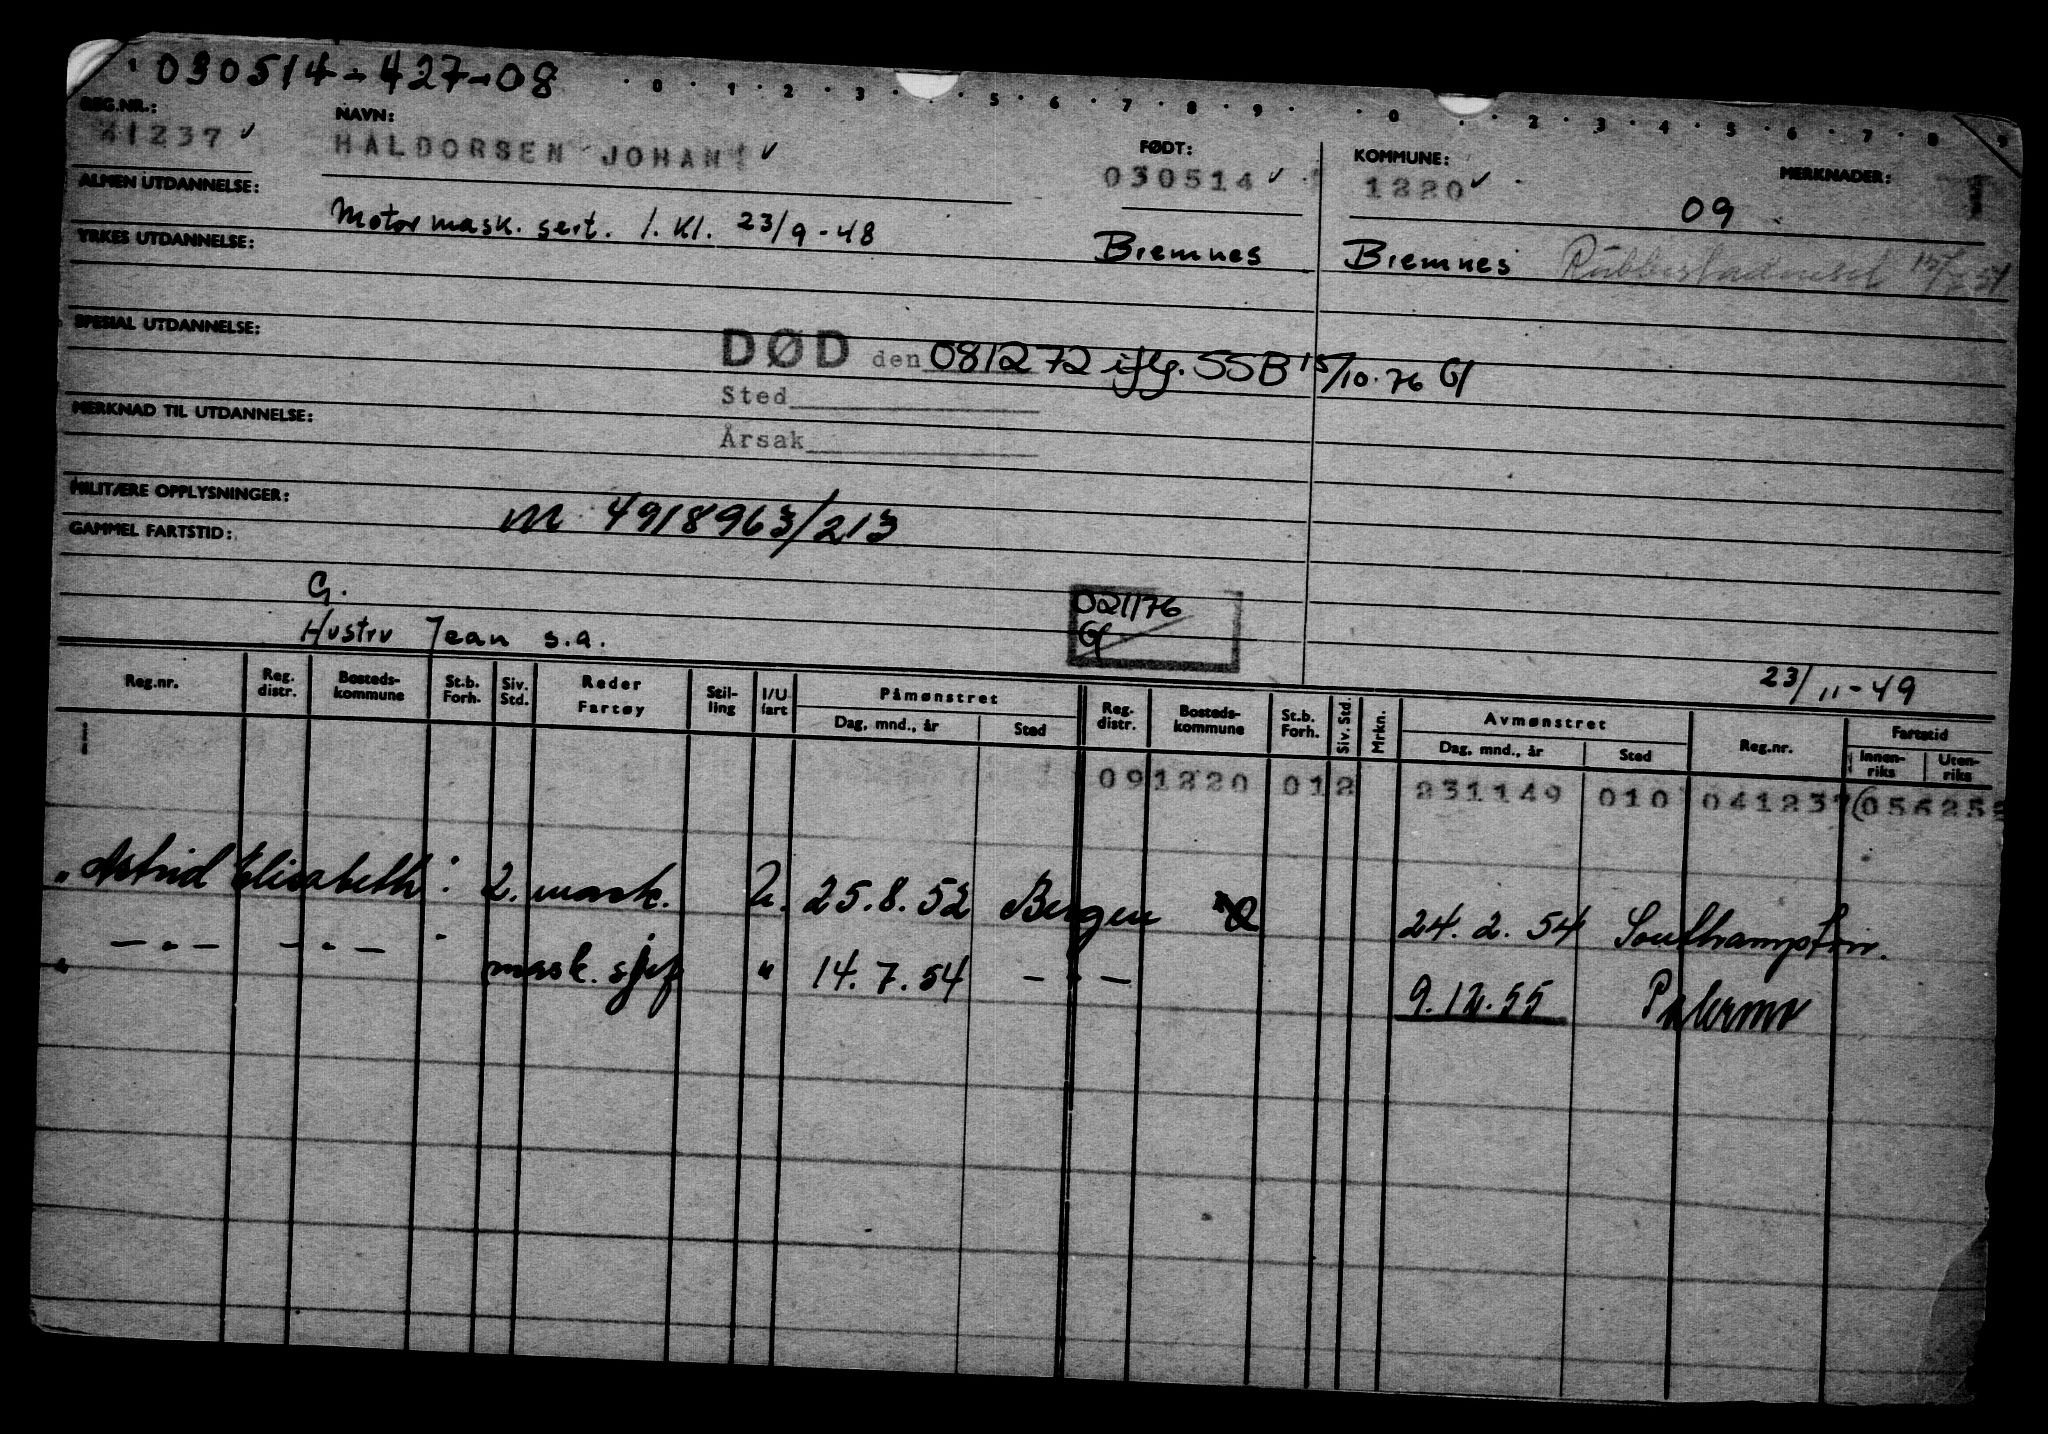 030514-427-08
0 1 2 3 5 6 7 8 9 0 2 3 4 5 6 7 8 9
REG.NR.: NAVN: FØDT: KOMMUNE: MERKNADER:
41237 ✓ HALDORSEN JOHAN ✓ 030514 ✓ 1220 ✓ 09
ALMEN UTDANNELSE:
Motormask. sert. 1. kl. 23/9-48 Bremnes Bremnes
YRKES UTDANNELSE:
SPESIAL UTDANNELSE:
DØD den 081272 iflg. SSB 15/10.76 Gf
Sted
Årsak
MERKNAD TIL UTDANNELSE:
MILITÆRE OPPLYSNINGER:
M 4918963/213
GAMMEL FARTSTID:
G.
021176
Gf
Hustru Jean s.a.
23/11-49
Reg.nr. Reg. distr. Bosteds-kommune St.b. Forh. Siv. Std. Reder Fartøy Stil-ling I/U fart Påmønstret Dag, mnd., år Sted Reg. distr. Bosteds-kommune St.b. Forh. Siv. Std. Mrkn. Avmønstret Dag, mnd., år Sted Reg.nr. Fartstid Innen-riks Uten-riks
09 1220 01 2 231149 010 041237 (056252
" Astrid Elisabeth : 2. mask. U. 25.8.52 Bergen 24.2.54 Southampton.
" — . — — . — mask. sjef " 14.7.54 — . — 9.12.55 Palermo